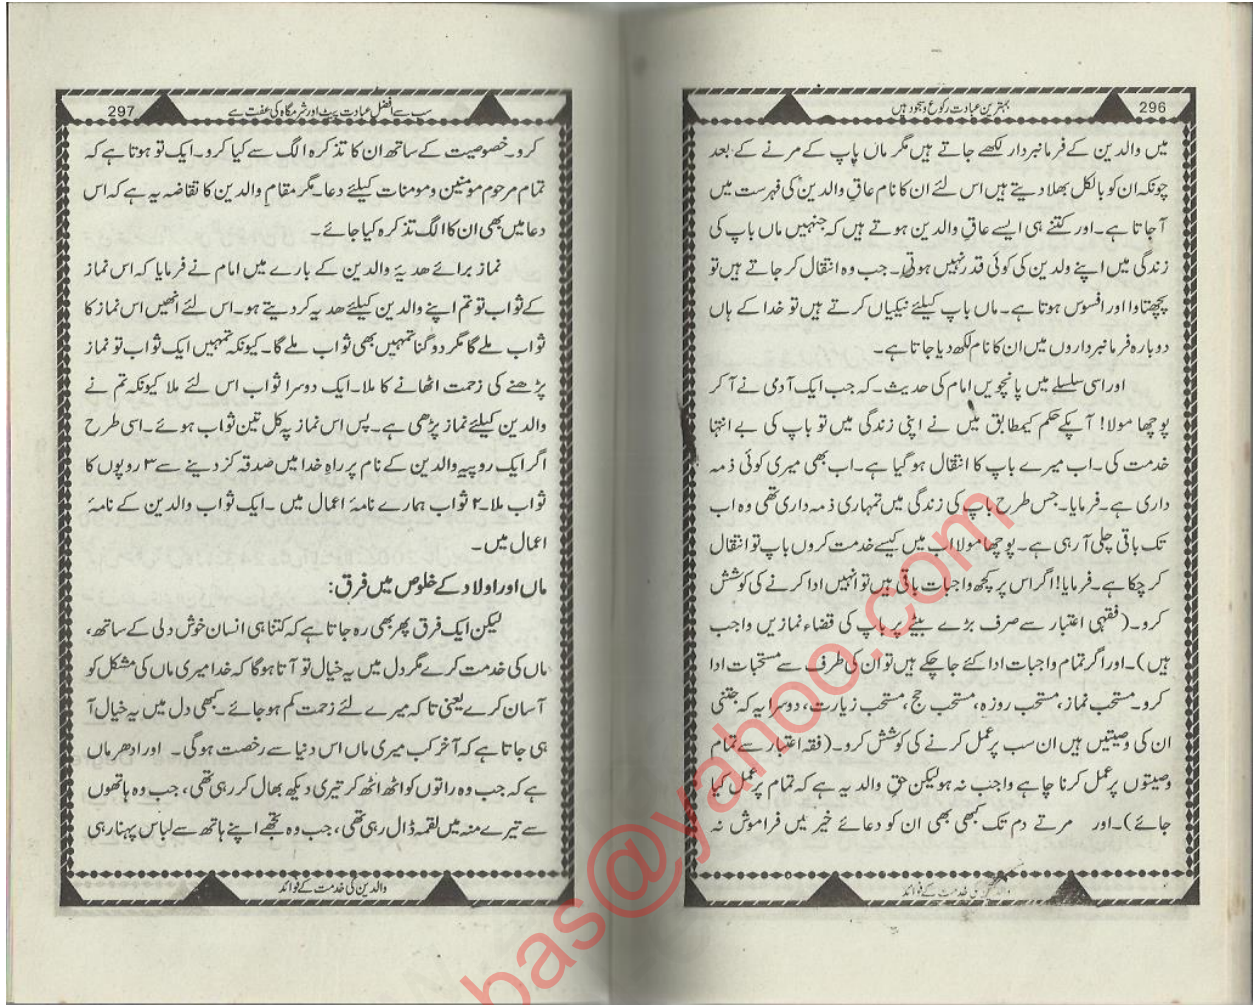 296
بہترین عبادت رکوع و سجود ہیں
میں والدین کے فرمانبردار لکھے جاتے ہیں مگر ماں باپ کے مرنے کے بعد
چونکہ ان کو بالکل بھلا دیتے ہیں اس لئے ان کا نام عاقِ والدین کی فہرست میں
آ جاتا ہے۔ اور کتنے ہی ایسے عاقِ والدین ہوتے ہیں کہ جنہیں ماں باپ کی
زندگی میں اپنے ولدین کی کوئی قدر نہیں ہوتی۔ جب وہ انتقال کر جاتے ہیں تو
پچھتاوا اور افسوس ہوتا ہے۔ ماں باپ کیلئے نیکیاں کرتے ہیں تو خدا کے ہاں
دوبارہ فرمانبرداروں میں ان کا نام لکھ دیا جاتا ہے۔
اور اسی سلسلے میں پانچویں امام کی حدیث۔ کہ جب ایک آدمی نے آ کر
پوچھا مولا! آپکے حکم کیمطابق میں نے اپنی زندگی میں تو باپ کی بے انتہا
خدمت کی۔ اب میرے باپ کا انتقال ہو گیا ہے۔ اب بھی میری کوئی ذمہ
داری ہے۔ فرمایا۔ جس طرح باپ کی زندگی میں تمہاری ذمہ داری تھی وہ اب
تک باقی چلی آ رہی ہے۔ پوچھا مولا اب میں کیسے خدمت کروں باپ تو انتقال
کر چکا ہے۔ فرمایا! اگر اس پر کچھ واجبات باقی ہیں تو انہیں ادا کرنے کی کوشش
کرو۔ (فقہی اعتبار سے صرف بڑے بیٹے پر باپ کی قضاء نمازیں واجب
ہیں)۔ اور اگر تمام واجبات ادا کئے جا چکے ہیں تو ان کی طرف سے مستحبات ادا
کرو۔ مستحب نماز، مستحب روزہ، مستحب حج، مستحب زیارت، دوسرا یہ کہ جتنی
ان کی وصیتیں ہیں ان سب پر عمل کرنے کی کوشش کرو۔ (فقہ اعتبار سے تمام
وصیتوں پر عمل کرنا چاہے واجب نہ ہو لیکن حقِ والد یہ ہے کہ تمام پر عمل کیا
جائے)۔ اور مرتے دم تک کبھی بھی ان کو دعائے خیر میں فراموش نہ
خدمت کے فوائد
297
سب سے افضل عبادت پیٹ اور شرمگاہ کی عفت ہے
کرو۔ خصوصیت کے ساتھ ان کا تذکرہ الگ سے کیا کرو۔ ایک تو ہوتا ہے کہ
تمام مرحوم مومنین و مومنات کیلئے دعا۔ مگر مقامِ والدین کا تقاضہ یہ ہے کہ اس
دعا میں بھی ان کا الگ تذکرہ کیا جائے۔
نماز برائے ھدیۂ والدین کے بارے میں امام نے فرمایا کہ اس نماز
کے ثواب تو تم اپنے والدین کیلئے ھدیہ کر دیتے ہو۔ اس لئے انھیں اس نماز کا
ثواب ملے گا مگر دوگنا تمہیں بھی ثواب ملے گا۔ کیونکہ تمہیں ایک ثواب تو نماز
پڑھنے کی زحمت اٹھانے کا ملا۔ ایک دوسرا ثواب اس لئے ملا کیونکہ تم نے
والدین کیلئے نماز پڑھی ہے۔ پس اس نماز پہ کل تین ثواب ہوئے۔ اسی طرح
اگر ایک روپیہ والدین کے نام پر راہِ خدا میں صدقہ کر دینے سے ۳ روپوں کا
ثواب ملا۔ ۲ ثواب ہمارے نامۂ اعمال میں۔ ایک ثواب والدین کے نامۂ
اعمال میں۔
ماں اور اولاد کے خلوص میں فرق:
لیکن ایک فرق پھر بھی رہ جاتا ہے کہ کتنا ہی انسان خوش دلی کے ساتھ،
ماں کی خدمت کرے مگر دل میں یہ خیال تو آتا ہوگا کہ خدا میری ماں کی مشکل کو
آسان کرے یعنی تاکہ میرے لئے زحمت کم ہو جائے۔ کبھی دل میں یہ خیال آ
ہی جاتا ہے کہ آخر کب میری ماں اس دنیا سے رخصت ہو گی۔ اور ادھر ماں
ہے کہ جب وہ راتوں کو اٹھ اٹھ کر تیری دیکھ بھال کر رہی تھی، جب وہ ہاتھوں
سے تیرے منہ میں لقمہ ڈال رہی تھی، جب وہ تجھے اپنے ہاتھ سے لباس پہنا رہی
والدین کی خدمت کے فوائد
bas@yahoo.com